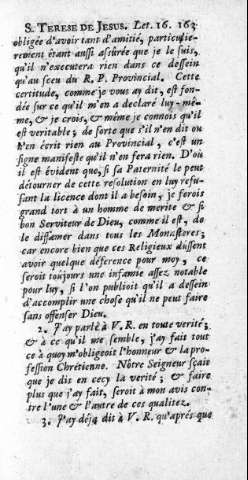 S. TERESE DE JESUS. Let. 16. 163
obligée d'avoir tant d'amitié, particulie-
rement étant aussi assûrée que je le suis,
qu'il n'executera rien dans ce dessein
qu'au sceu du R. P. Provincial. Cette
certitude, comme je vous ay dit, est fon-
dée sur ce qu'il m'en a declaré luy-mé-
me, & je crois, & même je connois qu'il
est veritable; de sorte que s'il n'en dit ou
n'en écrit rien au Provincial, c'est un
signe manifeste qu'il n'en fera rien. D'où
il est évident que, si sa Paternité le peut
détourner de cette resolution en luy refu-
sant la licence dont il a besoin, je ferois
grand tort à un homme de merite & si
bon Serviteur de Dieu, comme il est, de
le diffamer dans tous les Monasteres;
car encore bien que ces Religieux dussent
avoir quelque déference pour moy, ce
seroit toujours une infamie assez notable
pour luy, si l'on publioit qu'il a dessein
d'accomplir une chose qu'il ne peut faire
sans offenser Dieu.
2. J'ay parlé à V. R. en toute verité;
& à ce qu'il me semble, j'ay fait tout
ce à quoy m'obligeoit l'honneur & la pro-
fession Chrétienne. Nôtre Seigneur sçait
que je dit en cecy la verité; & faire
plus que j'ay fait, seroit à mon avis con-
tre l'une & l'autre de ces qualitez.
3. J'ay déja dit à V. R. qu'aprés que